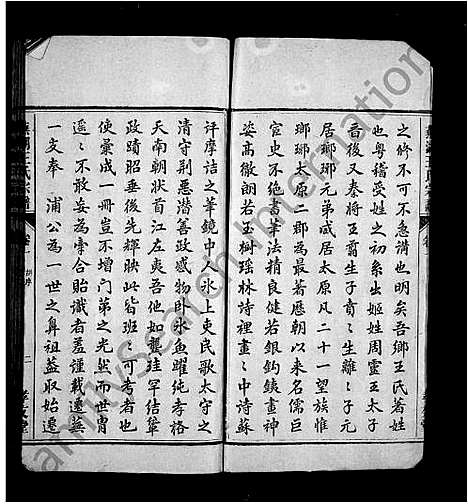 之修不可不急講也明矣吾鄉王氏著姓
也粵稽受姓之初系出姬姓周靈王太子
晉後又秦將王翦生子賁賁生離離子元
居瑯琊元弟威居太原凡二十一望族惟
瑯琊太原二郡為最著歷朝以來名儒巨
宦史不絕書筆法精良健若銀鈎錶畫神
姿高徹朗若玉樹瑶林詩裡畫畫中詩蘇
评摩詰之華鏡中人氷上吏民歌太守之
清守荆惡潛善政感物卧氷魚躍純孝格
天南朝狀首江左夷吾他如龔珪罕结輩
政蹟昭垂後先輝映此皆班班可考者也
使彙成一冊豈不增門第之光然而世冑
遥遥不敢妄為牽合貽識者羞謹載遷蕪
一支奉 浦公為一世之鼻祖蓋取始遷
FamilySearch International